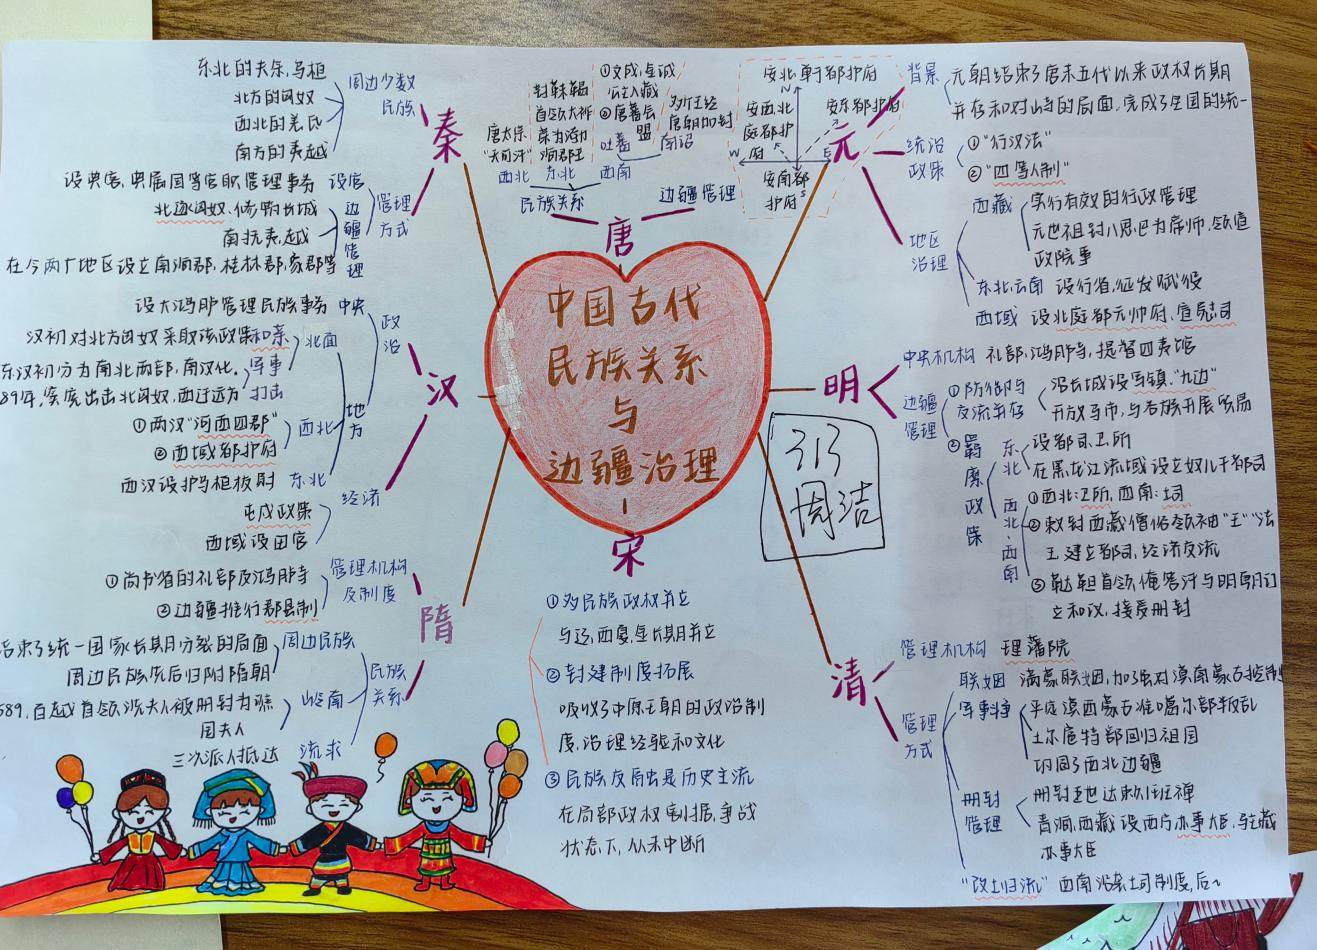 中国古代
民族关系
与
边疆治理
秦
周边少数
民族
东北的夫余,乌桓
北方的匈奴
西北的羌氐
南方的夷越
管理
方式
设官
设典客,典属国等官职管理事务
边疆管理
北逐匈奴,修筑长城
南抗夷,越
在今两广地区设立南海郡,桂林郡,象郡等
汉
政治
中央
设大鸿胪管理民族事务
地方
北面
和亲
汉初对北方匈奴采取该政策
军事
打击
东汉初分为南北两部,南汉化.
89年,窦宪出击北匈奴,西迁远方
西北
①两汉"河西四郡"
②西域都护府
东北
西汉设护乌桓校尉
经济
屯戍政策
西域设田官
隋
管理机构
及制度
①尚书省的礼部及鸿胪寺
②边疆推行郡县制
民族
关系
周边民族
结束了统一国家长期分裂的局面
周边民族先后归附隋朝
岭南
589,百越首领冼夫人被册封为谯
国夫人
流求
三次派人抵达
唐
民族关系
西北
唐太宗
"天可汗"
东北
封靺鞨
首领大祚
荣为渤
海郡王
西南
吐蕃
①文成,金城
公主入藏
②唐蕃会
盟
南诏
边疆管理
安北,单于都护府
安西,北
庭都护
府
安东都护府
安南都
护府
N
W
E
S
宋
①多民族政权并立
与辽,西夏,金长期并立
②封建制度拓展
吸收了中原王朝的政治制
度,治理经验和文化
③民族交融也是历史主流
在局部政权割据,争战
状态下,从未中断
元
背景
元朝结束了唐末五代以来政权长期
并存和对峙的局面,完成了全国的统一
统治
政策
①"行汉法"
②"四等人制"
地区
治理
西藏
实行有效的行政管理
元世祖封八思巴为帝师,领宣
政院事
东北,云南 设行省,征发赋役
西域 设北庭都元帅府,宣慰司
明
中央机构 礼部,鸿胪寺,提督四夷馆
边疆
管理
①防御与
交流并存
沿长城设军镇,"九边"
开放马市,与各族开展贸易
②羁縻政策
东北
设都司卫所
在黑龙江流域设立奴儿干都司
西北·西南
①西北:卫所,西南:土司
②敕封西藏僧俗领袖"王""法
王 建立都司,经济交流
③鞑靼首领俺答汗与明朝订
立和议,接受册封
313
周洁
清
管理机构 理藩院
管理
方式
联姻 满蒙联姻,加强对漠南蒙古控制
平定漠西蒙古准噶尔部叛乱
土尔扈特部回归祖国
巩固了西北边疆
册封
管理
册封达赖,班禅
青海,西藏设西宁办事大臣,驻藏
办事大臣
"改土归流" 西南沿袭土司制度,后~